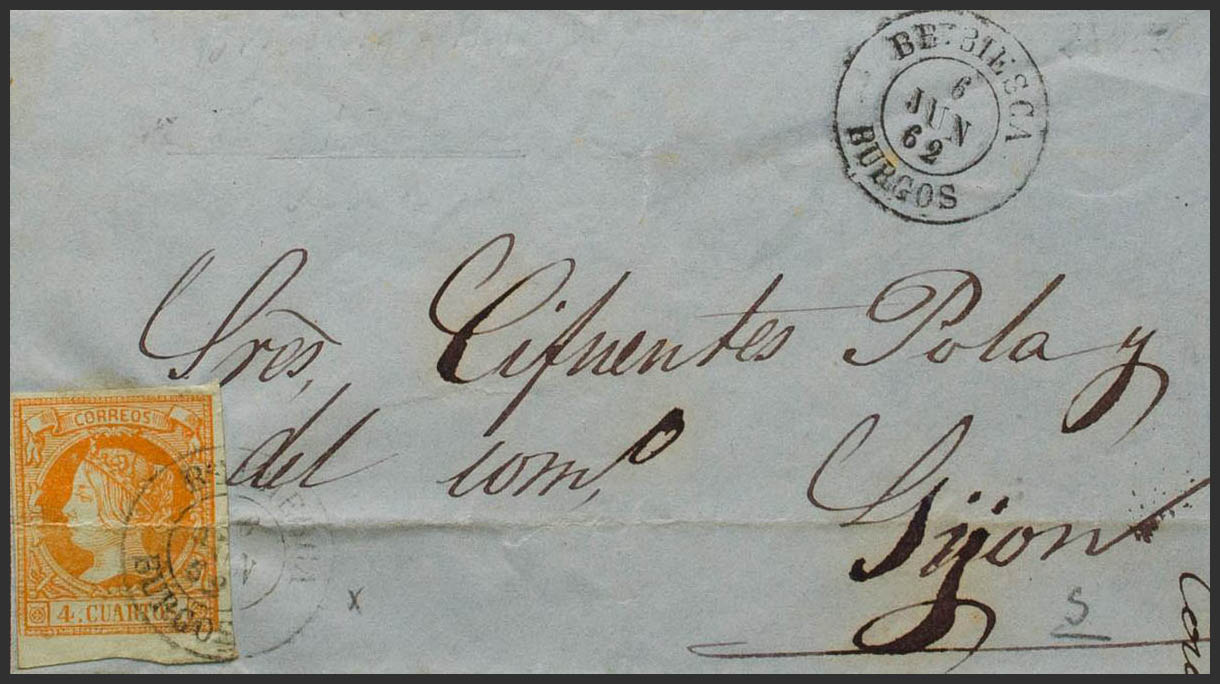 BRIBIESCA
6
JUN
62
BURGOS
Sres, Cifuentes Pola y
del com,º
Gijon
CORREOS
4. CUARTOS
BURGOS
x
S